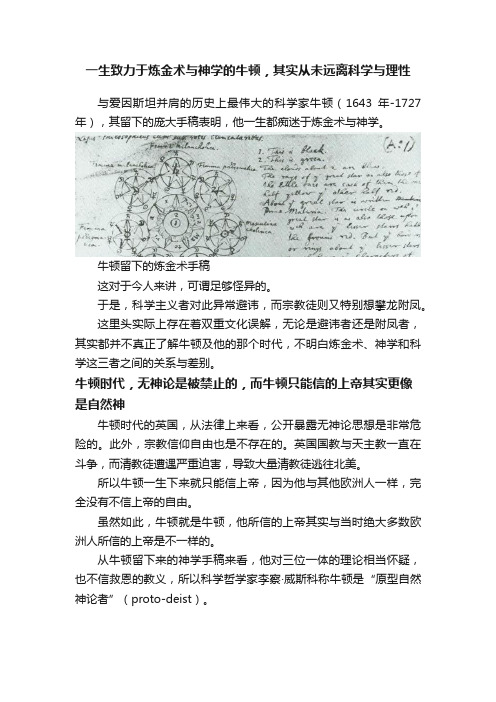 一生致力于炼金术与神学的牛顿，其实从未远离科学与理性
与爱因斯坦并肩的历史上最伟大的科学家牛顿（1643 年-1727
年），其留下的庞大手稿表明，他一生都痴迷于炼金术与神学。
1. This is black.
2. This is green.
牛顿留下的炼金术手稿
这对于今人来讲，可谓足够怪异的。
于是，科学主义者对此异常避讳，而宗教徒则又特别想攀龙附凤。
这里头实际上存在着双重文化误解，无论是避讳者还是附凤者，
其实都并不真正了解牛顿及他的那个时代，不明白炼金术、神学和科
学这三者之间的关系与差别。
牛顿时代，无神论是被禁止的，而牛顿只能信的上帝其实更像
是自然神
牛顿时代的英国，从法律上来看，公开暴露无神论思想是非常危
险的。此外，宗教信仰自由也是不存在的。英国国教与天主教一直在
斗争，而清教徒遭遇严重迫害，导致大量清教徒逃往北美。
所以牛顿一生下来就只能信上帝，因为他与其他欧洲人一样，完
全没有不信上帝的自由。
虽然如此，牛顿就是牛顿，他所信的上帝其实与当时绝大多数欧
洲人所信的上帝是不一样的。
从牛顿留下来的神学手稿来看，他对三位一体的理论相当怀疑，
也不信救恩的教义，所以科学哲学家李察·威斯科称牛顿是“原型自然
神论者”（proto-deist）。